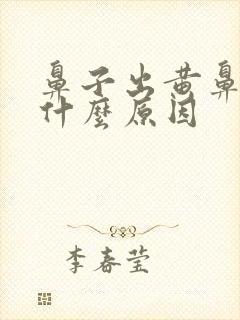 鼻子出黄鼻
什麼原因
李春莹